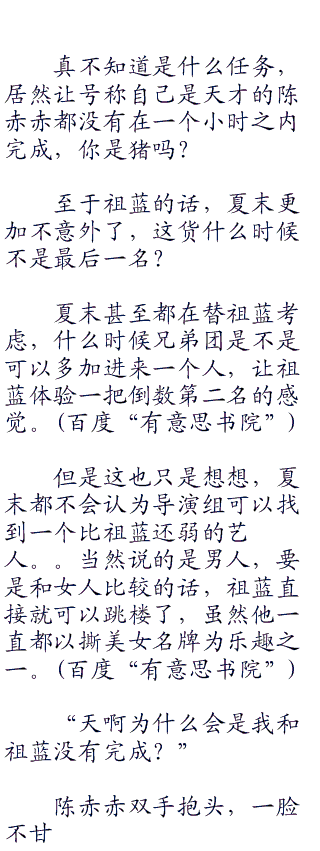 真不知道是什么任务，
居然让号称自己是天才的陈
赤赤都没有在一个小时之内
完成，你是猪吗？
至于祖蓝的话，夏末更
加不意外了，这货什么时候
不是最后一名？
夏末甚至都在替祖蓝考
虑，什么时候兄弟团是不是
可以多加进来一个人，让祖
蓝体验一把倒数第二名的感
觉。(百度“有意思书院”)
但是这也只是想想，夏
末都不会认为导演组可以找
到一个比祖蓝还弱的艺
人。。当然说的是男人，要
是和女人比较的话，祖蓝直
接就可以跳楼了，虽然他一
直都以撕美女名牌为乐趣之
一。(百度“有意思书院”)
“天啊为什么会是我和
祖蓝没有完成？”
陈赤赤双手抱头，一脸
不甘